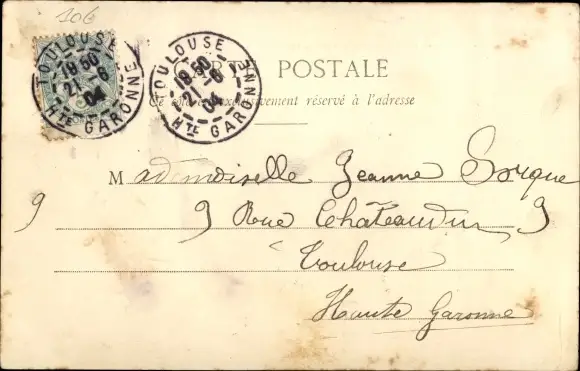 106
TOULOUSE
19 50
21 -6
04
HTE GARONNE
TOULOUSE
19 50
21 -6
04
HTE GARONNE
CARTE POSTALE
Ce côté est exclusivement réservé à l'adresse
Mademoiselle Jeanne Sorque
9 9 Roue Chateaudun 9
Toulouse
Haute Garonne